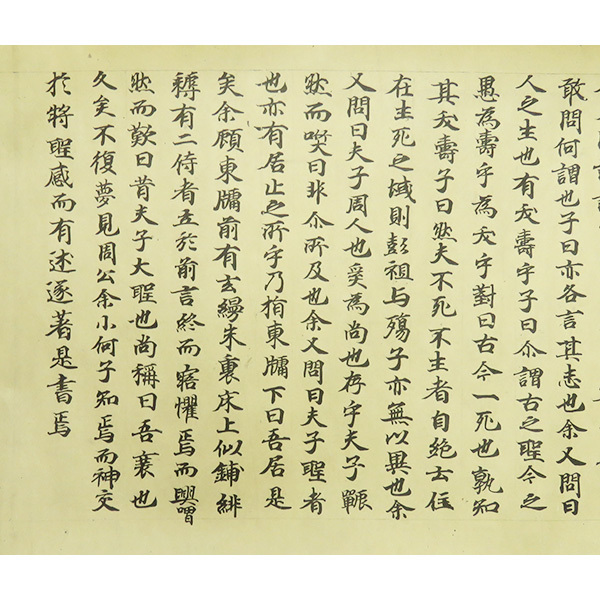 敢問何謂也子曰亦各言其志也余又問曰
人之生也有夭壽乎子曰尒謂古之聖今之
愚為壽乎為夭乎對曰古今一死也孰知
其夭壽子曰然夫不死不生者自絕去住
在生死之域則彭祖与殤子亦無以異也余
又問曰夫子周人也奚為尚也存乎夫子囅
然而笑曰非尒所及也余又問曰夫子聖者
也亦有居止之所乎乃指東牖下曰吾居是
矣余顧東牖前有玄縵朱裏床上似鋪緋
褥有二侍者立於前言終而寤懼焉而興喟
然而歎曰昔夫子大聖也尚稱曰吾衰也
久矣不復夢見周公余小何子知焉而神交
於將聖感而有述遂著是書焉